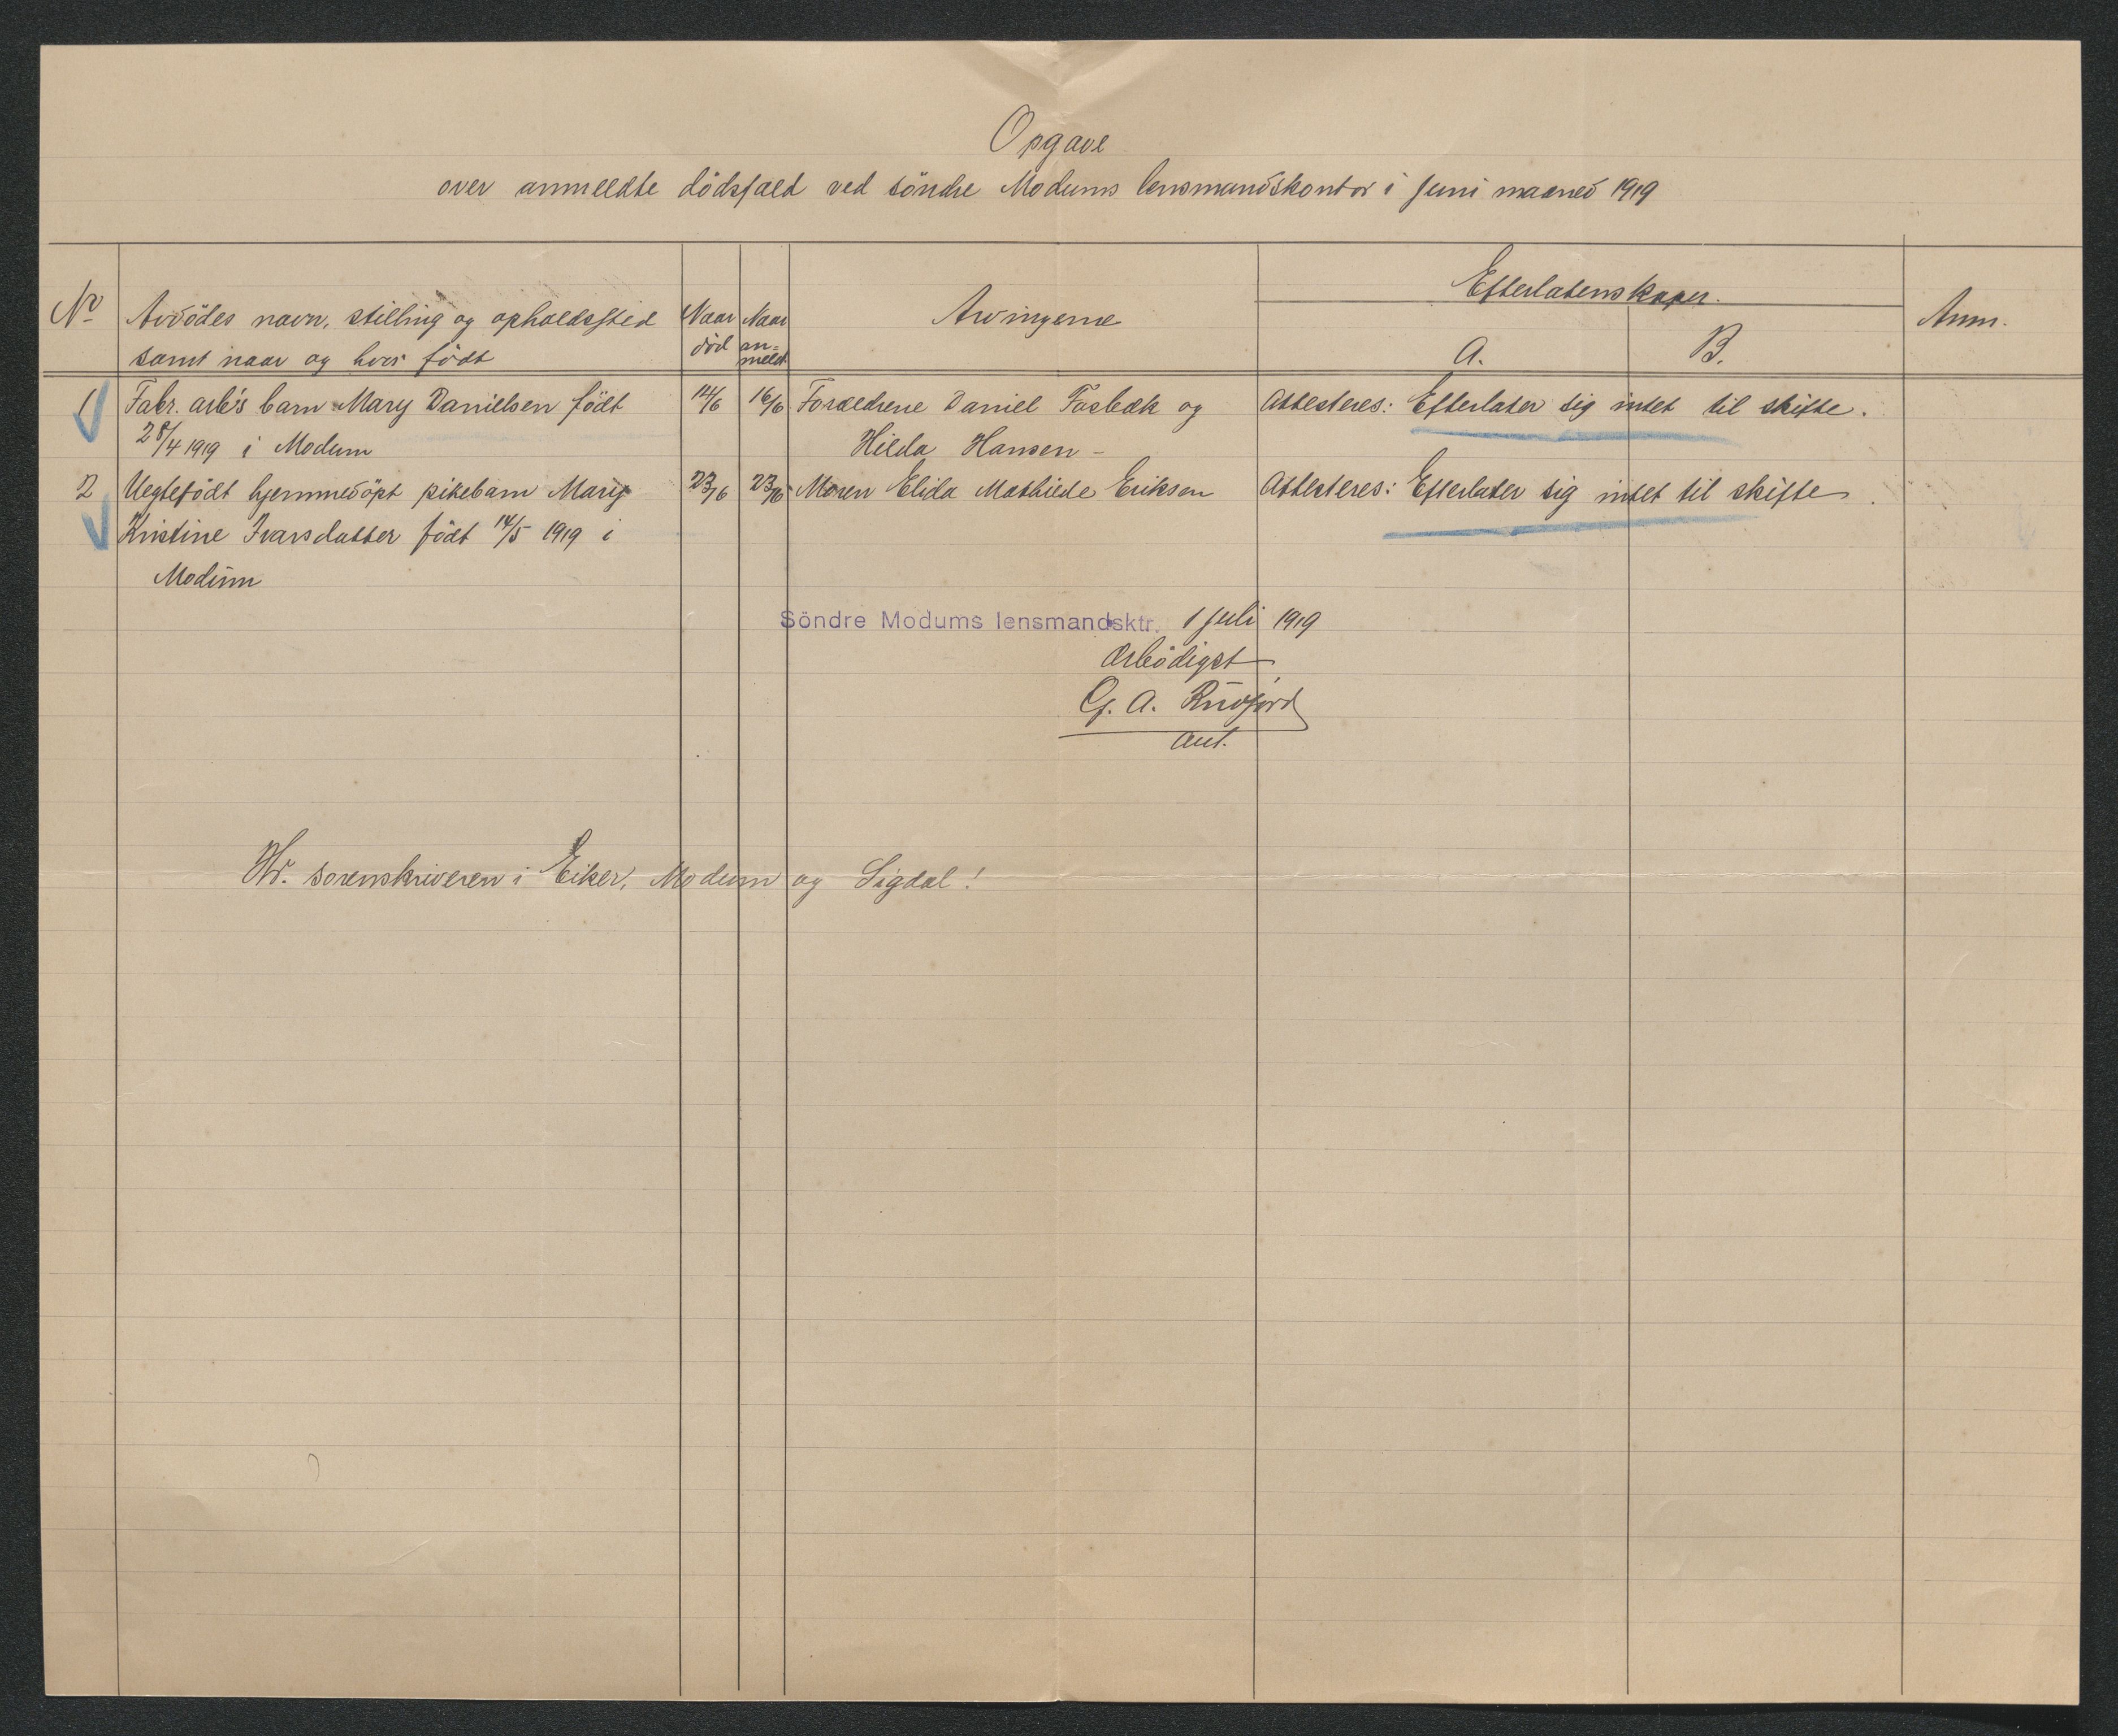 Opgave
over anmeldte dödsfald ved söndre Modums lensmandskontor i Juni maaned 1919
No Avdödes navn, stilling og opholdssted samt naar og hvor födt Naar död Naar anmeldt Arvingerne Efterlatenskaper. A. B. Anm.
1 Fabr. arb's barn Mary Danielsen födt 14/6 16/6 Forældrene Daniel Fosbæk og Attesteres: Efterlater sig intet til skifte.
28/4 1919 i Modum Hilda Hansen -
2 Uegtefödt hjemmedöpt pikebarn Mary 23/6 23/6 Moren Elida Mathilde Eriksen Attesteres: Efterlater sig intet til skifte.
Kristine Ivarsdatter födt 14/5 1919 i
Modum
Söndre Modums lensmandsktr. 1 juli 1919
Ærbödigst
G. A.
aut.
Hr. sorenskriveren i Eiker, Modum og Sigdal!